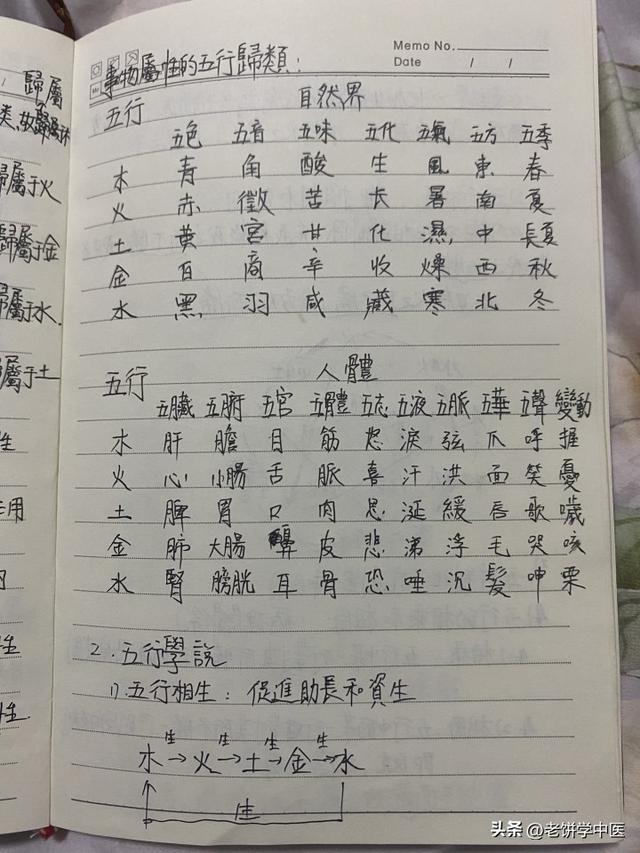 Memo No.
Date / /
事物屬性的五行歸類：
五行 自然界
五色 五音 五味 五化 五氣 五方 五季
木 青 角 酸 生 風 東 春
火 赤 徵 苦 长 暑 南 夏
土 黄 宮 甘 化 濕 中 長夏
金 白 商 辛 收 燥 西 秋
水 黑 羽 咸 藏 寒 北 冬
五行 人體
五臟 五腑 五官 五體 五志 五液 五脈 五華 五聲 變動
水 肝 膽 目 筋 怒 淚 弦 爪 呼 握
火 心 小腸 舌 脈 喜 汗 洪 面 笑 憂
土 脾 胃 口 肉 思 涎 緩 唇 歌 噦
金 肺 大腸 鼻 皮 悲 涕 浮 毛 哭 咳
水 腎 膀胱 耳 骨 恐 唾 沉 髮 呻 栗
2.五行學說
1).五行相生：促進助長和資生
生 生 生 生
木→火→土→金→水
生
歸屬
歸屬于火
歸屬于金
歸屬于水.
歸屬于土
性
用
性
性.
头条 @老饼学中医